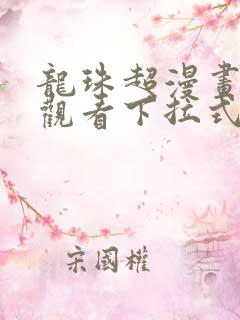 龍珠超漫畫
觀看下拉式
宋國權